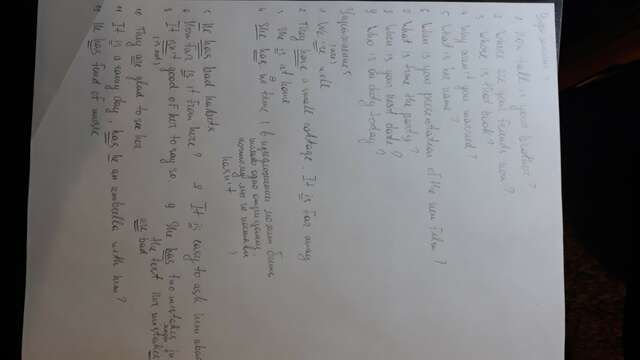 Упражнение 4
1 How tall is your brother?
2 Where are your friends now?
3 Whose is that book?
4 Why aren't you married?
5 What is her name?
6 When is your presentation of the new film?
7 What is time the party?
8 When is your next date?
9 Who is on duty today?
Упражнение 5
1 We are well
2 They have a small cottage. It is far away
3 He is at home
4 She has no time
(в предложении может быть
только одно отрицание,
поэтому мы не поставили
hasn't)
5 He has bad habits
6 How far is it from here? 8 It is easy to ask him about
7 It isn't good of her to say so 9 She has two mistakes in
(is not)
the test. Her mistakes
are bad
10 They are glad to see her
11 It is a rainy day, has he an umbrella with him?
12 He has fond of music